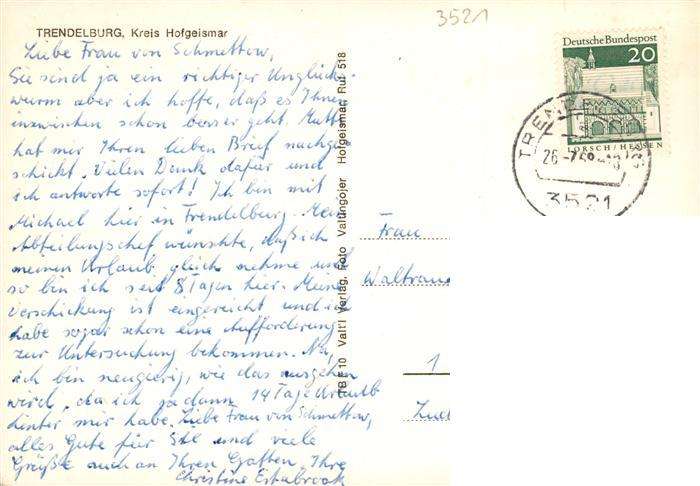 TRENDELBURG, Kreis Hofgeismar
3521
Liebe Frau von Schmettow,
Sie sind ja ein richtiger Unglücks-
wurm aber ich hoffe, daß es Ihnen
inzwischen schon besser geht. Mutti
hat mir Ihren lieben Brief nachge-
schickt. Vielen Dank dafür und
ich antworte sofort! Ich bin mit
Michael hier in Trendelburg. Mein
Abteilungschef wünschte, daß ich
meinen Urlaub gleich nehme und
so bin ich seit 8 Tagen hier. Meine
Verschickung ist eingereicht und ich
habe sogar schon eine Aufforderung
zur Untersuchung bekommen. Na,
ich bin neugierig, wie das ausgehen
wird, da ich ja dann 14 Tage Urlaub
hinter mir habe. Liebe Frau von Schmettow,
alles Gute für Sie und viele
Grüße auch an Ihren Gatten, Ihre
Christine
Val't'l Verlag, Foto Valtingojer Hofgeismar, Ruf 518
Deutsche Bundespost
20
LORSCH / HESSEN
3521
Frau
Waltrau
1